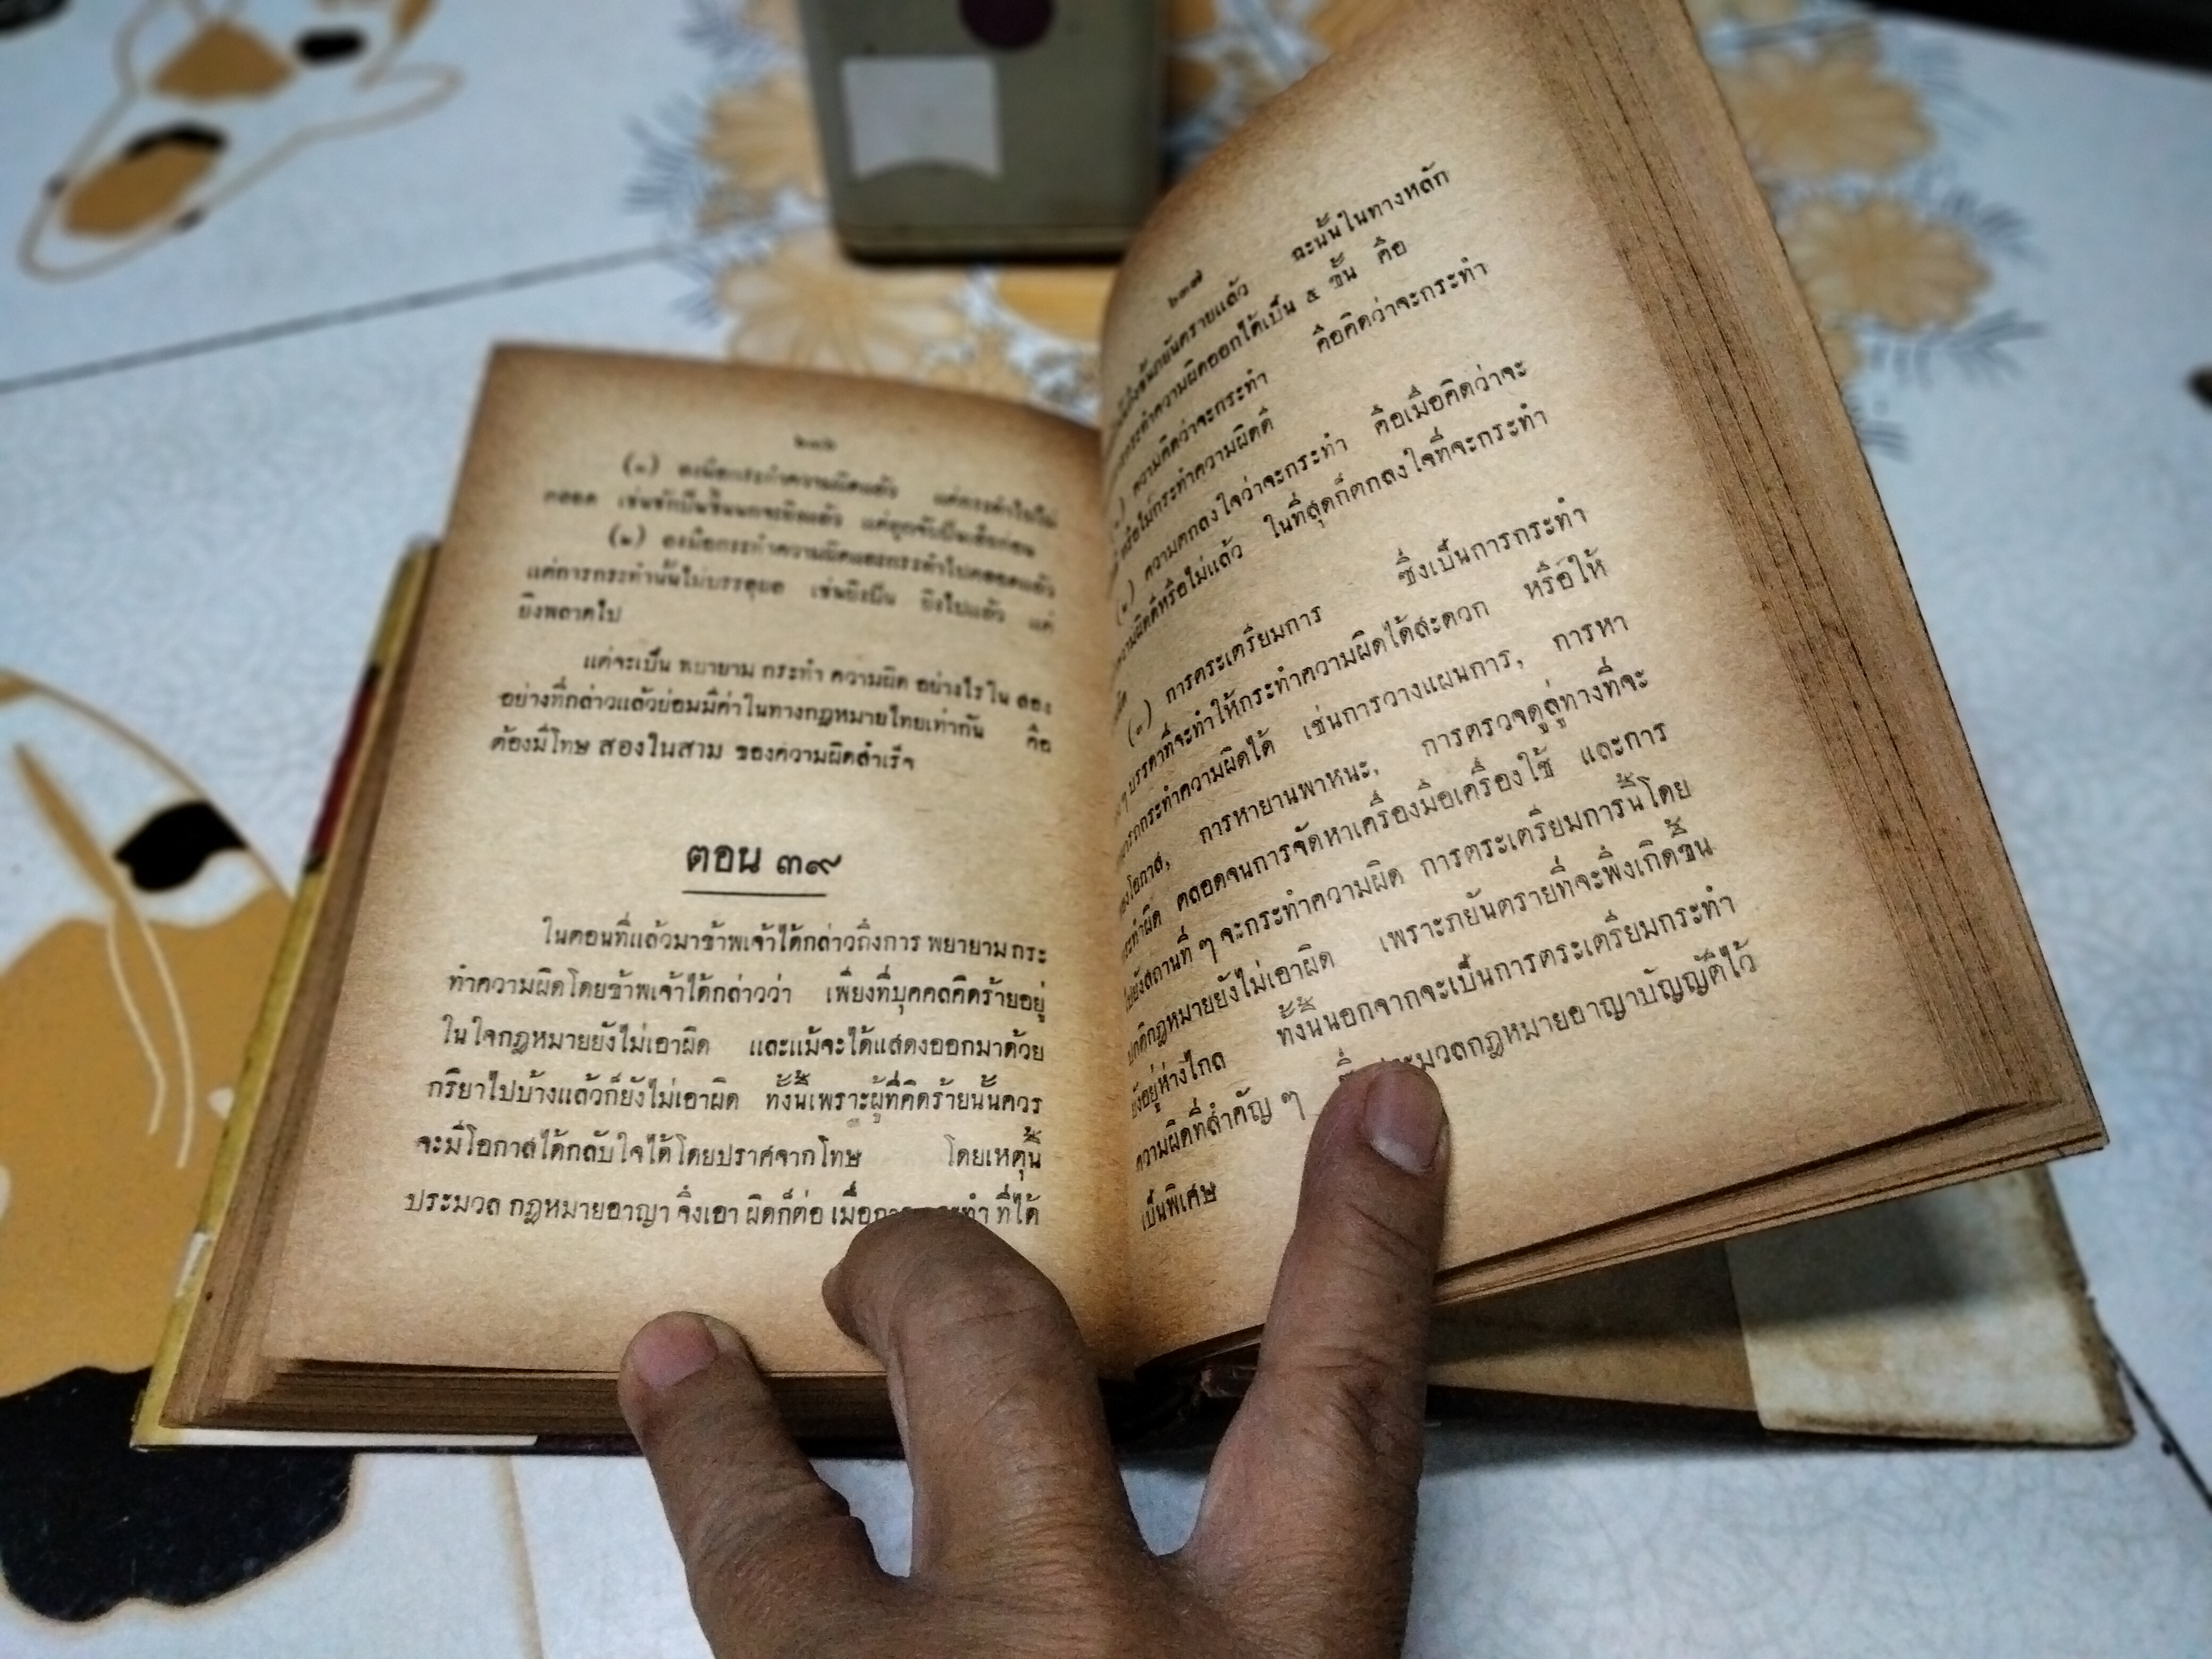 ๒๓๖
(๑) ลงมือกระทำความผิดแล้ว แต่กระทำไปไม่
ตลอด เช่นชักปืนขึ้นนกจะยิงแล้ว แต่ถูกจับปืนเสียก่อน
(๒) ลงมือกระทำความผิดและกระทำไปตลอดแล้ว
แต่การกระทำนั้นไม่บรรลุผล เช่นยิงปืน ยิงไปแล้ว แต่
ยิงพลาดไป
แต่จะเป็น พยายาม กระทำ ความผิด อย่างไร ใน สอง
อย่างที่กล่าวแล้วย่อมมีค่าในทางกฎหมายไทยเท่ากัน คือ
ต้องมีโทษ สองในสาม ของความผิดสำเร็จ
ตอน ๓๙
ในตอนที่แล้วมาข้าพเจ้าได้กล่าวถึงการ พยายาม กระ
ทำความผิดโดยข้าพเจ้าได้กล่าวว่า เพียงที่บุคคลคิดร้ายอยู่
ในใจกฎหมายยังไม่เอาผิด และแม้จะได้แสดงออกมาด้วย
กริยาไปบ้างแล้วก็ยังไม่เอาผิด ทั้งนี้เพราะผู้ที่คิดร้ายนั้นควร
จะมีโอกาสได้กลับใจได้โดยปราศจากโทษ โดยเหตุนี้
ประมวล กฎหมายอาญา จึงเอา ผิดก็ต่อ เมื่อ ที่ได้
๒๓๗
ภยันตรายแล้ว ฉะนั้นในทางหลัก
กระทำความผิดออกได้เป็น ๕ ขั้น คือ
ความคิดว่าจะกระทำ คือคิดว่าจะกระทำ
หรือไม่กระทำความผิดดี
(๒) ความตกลงใจว่าจะกระทำ คือเมื่อคิดว่าจะ
ความผิดดีหรือไม่แล้ว ในที่สุดก็ตกลงใจที่จะกระทำ
(๓) การตระเตรียมการ ซึ่งเป็นการกระทำ
ๆ บรรดาที่จะทำให้กระทำความผิดได้สะดวก หรือให้
กระทำความผิดได้ เช่นการวางแผนการ, การหา
โอกาส, การหายานพาหนะ, การตรวจดูลู่ทางที่จะ
กระทำผิด ตลอดจนการจัดหาเครื่องมือเครื่องใช้ และการ
ไปยังสถานที่ ๆ จะกระทำความผิด การตระเตรียมการนี้โดย
ปกติกฎหมายยังไม่เอาผิด เพราะภยันตรายที่จะพึงเกิดขึ้น
ยังอยู่ห่างไกล ทั้งนี้นอกจากจะเป็นการตระเตรียมกระทำ
ความผิดที่สำคัญ ๆ ซึ่งประมวลกฎหมายอาญาบัญญัติไว้
เป็นพิเศษ